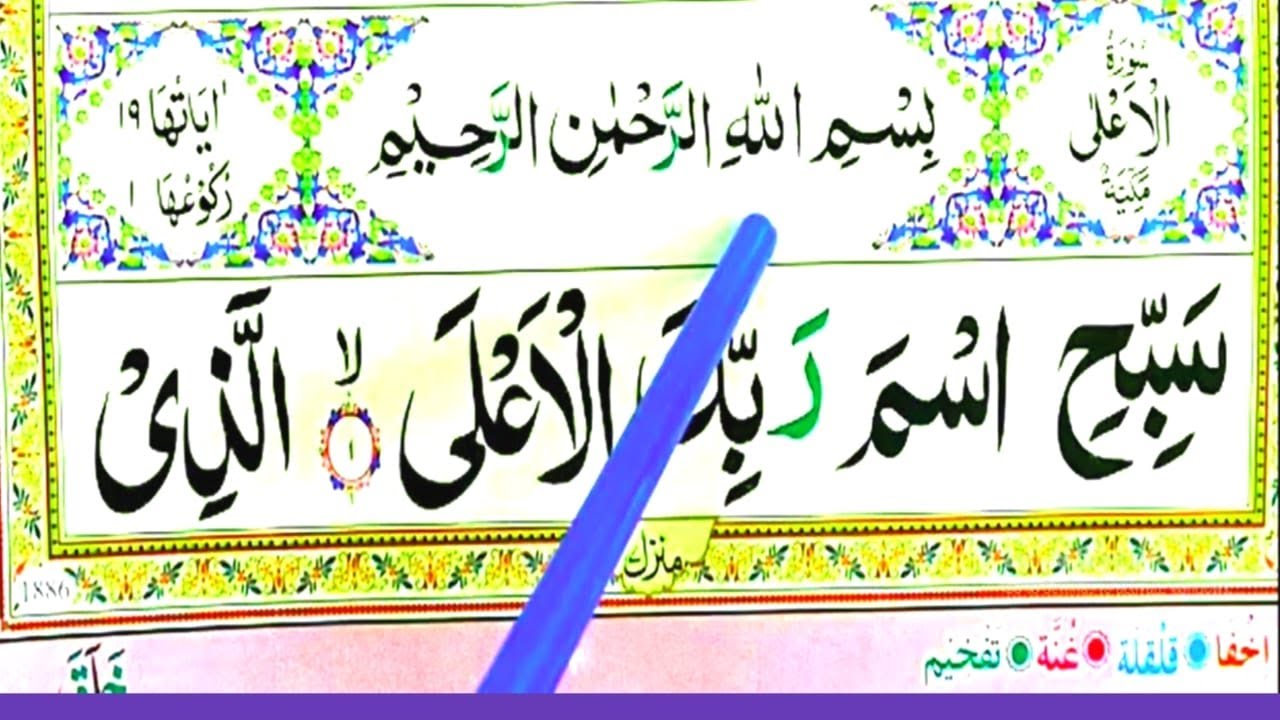 سُوْرَةُ الْاَعْلٰى مَكِّيَّةٌ
بِسْمِ اللّٰهِ الرَّحْمٰنِ الرَّحِيْمِ
اٰيَاتُهَا ١٩
رُكُوْعُهَا ١
سَبِّحِ اسْمَ رَبِّكَ الْاَعْلَى لا ١ الَّذِىْ
منزل
1886
اخفا قلقلة غُنَّة تفخيم
خَلَقَ